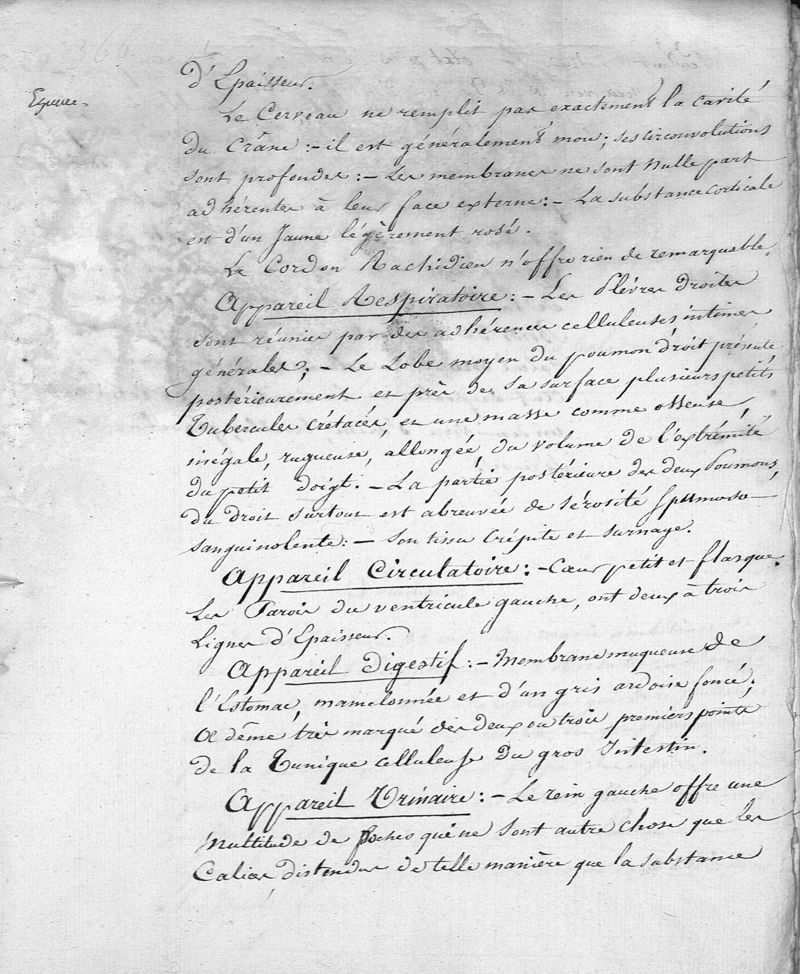 d'Epaisseur.
Le Cerveau ne remplit pas exactement la cavité
du Crâne :- il est généralement mou; ses circonvolutions
sont profondes :- Les membranes ne sont nulle part
adhérentes à leur face externe :- La substance corticale
est d'un Jaune légèrement rosé.
Le Cordon Rachidien n'offre rien de remarquable.
Appareil Respiratoire :- Les Plèvres droites
sont réunies par des adhérences celluleuses intimes
générales; - Le Lobe moyen du poumon droit présente
postérieurement et près de sa surface plusieurs petits
Tubercules crétacés, et une masse comme osseuse,
inégale, rugueuse, allongée, du volume de l'extrémité
du petit doigt. - La partie postérieure des deux Poumons,
du droit surtout est abreuvée de sérosité spumoso-
sanguinolente :- Son tissu Crépite et surnage.
Appareil Circulatoire :- Cœur petit et flasque.
Les Parois du ventricule gauche, ont deux à trois
Lignes d'Epaisseur.
Appareil Digestif :- Membrane muqueuse de
l'Estomac, mamelonnée et d'un gris ardoise foncé;
Œdême très marqué des deux ou trois premiers points
de la Tunique celluleuse du gros Intestin.
Appareil Urinaire :- Le rein gauche offre une
Multitude de poches qui ne sont autre chose que les
Calices distendus de telle manière que la substance